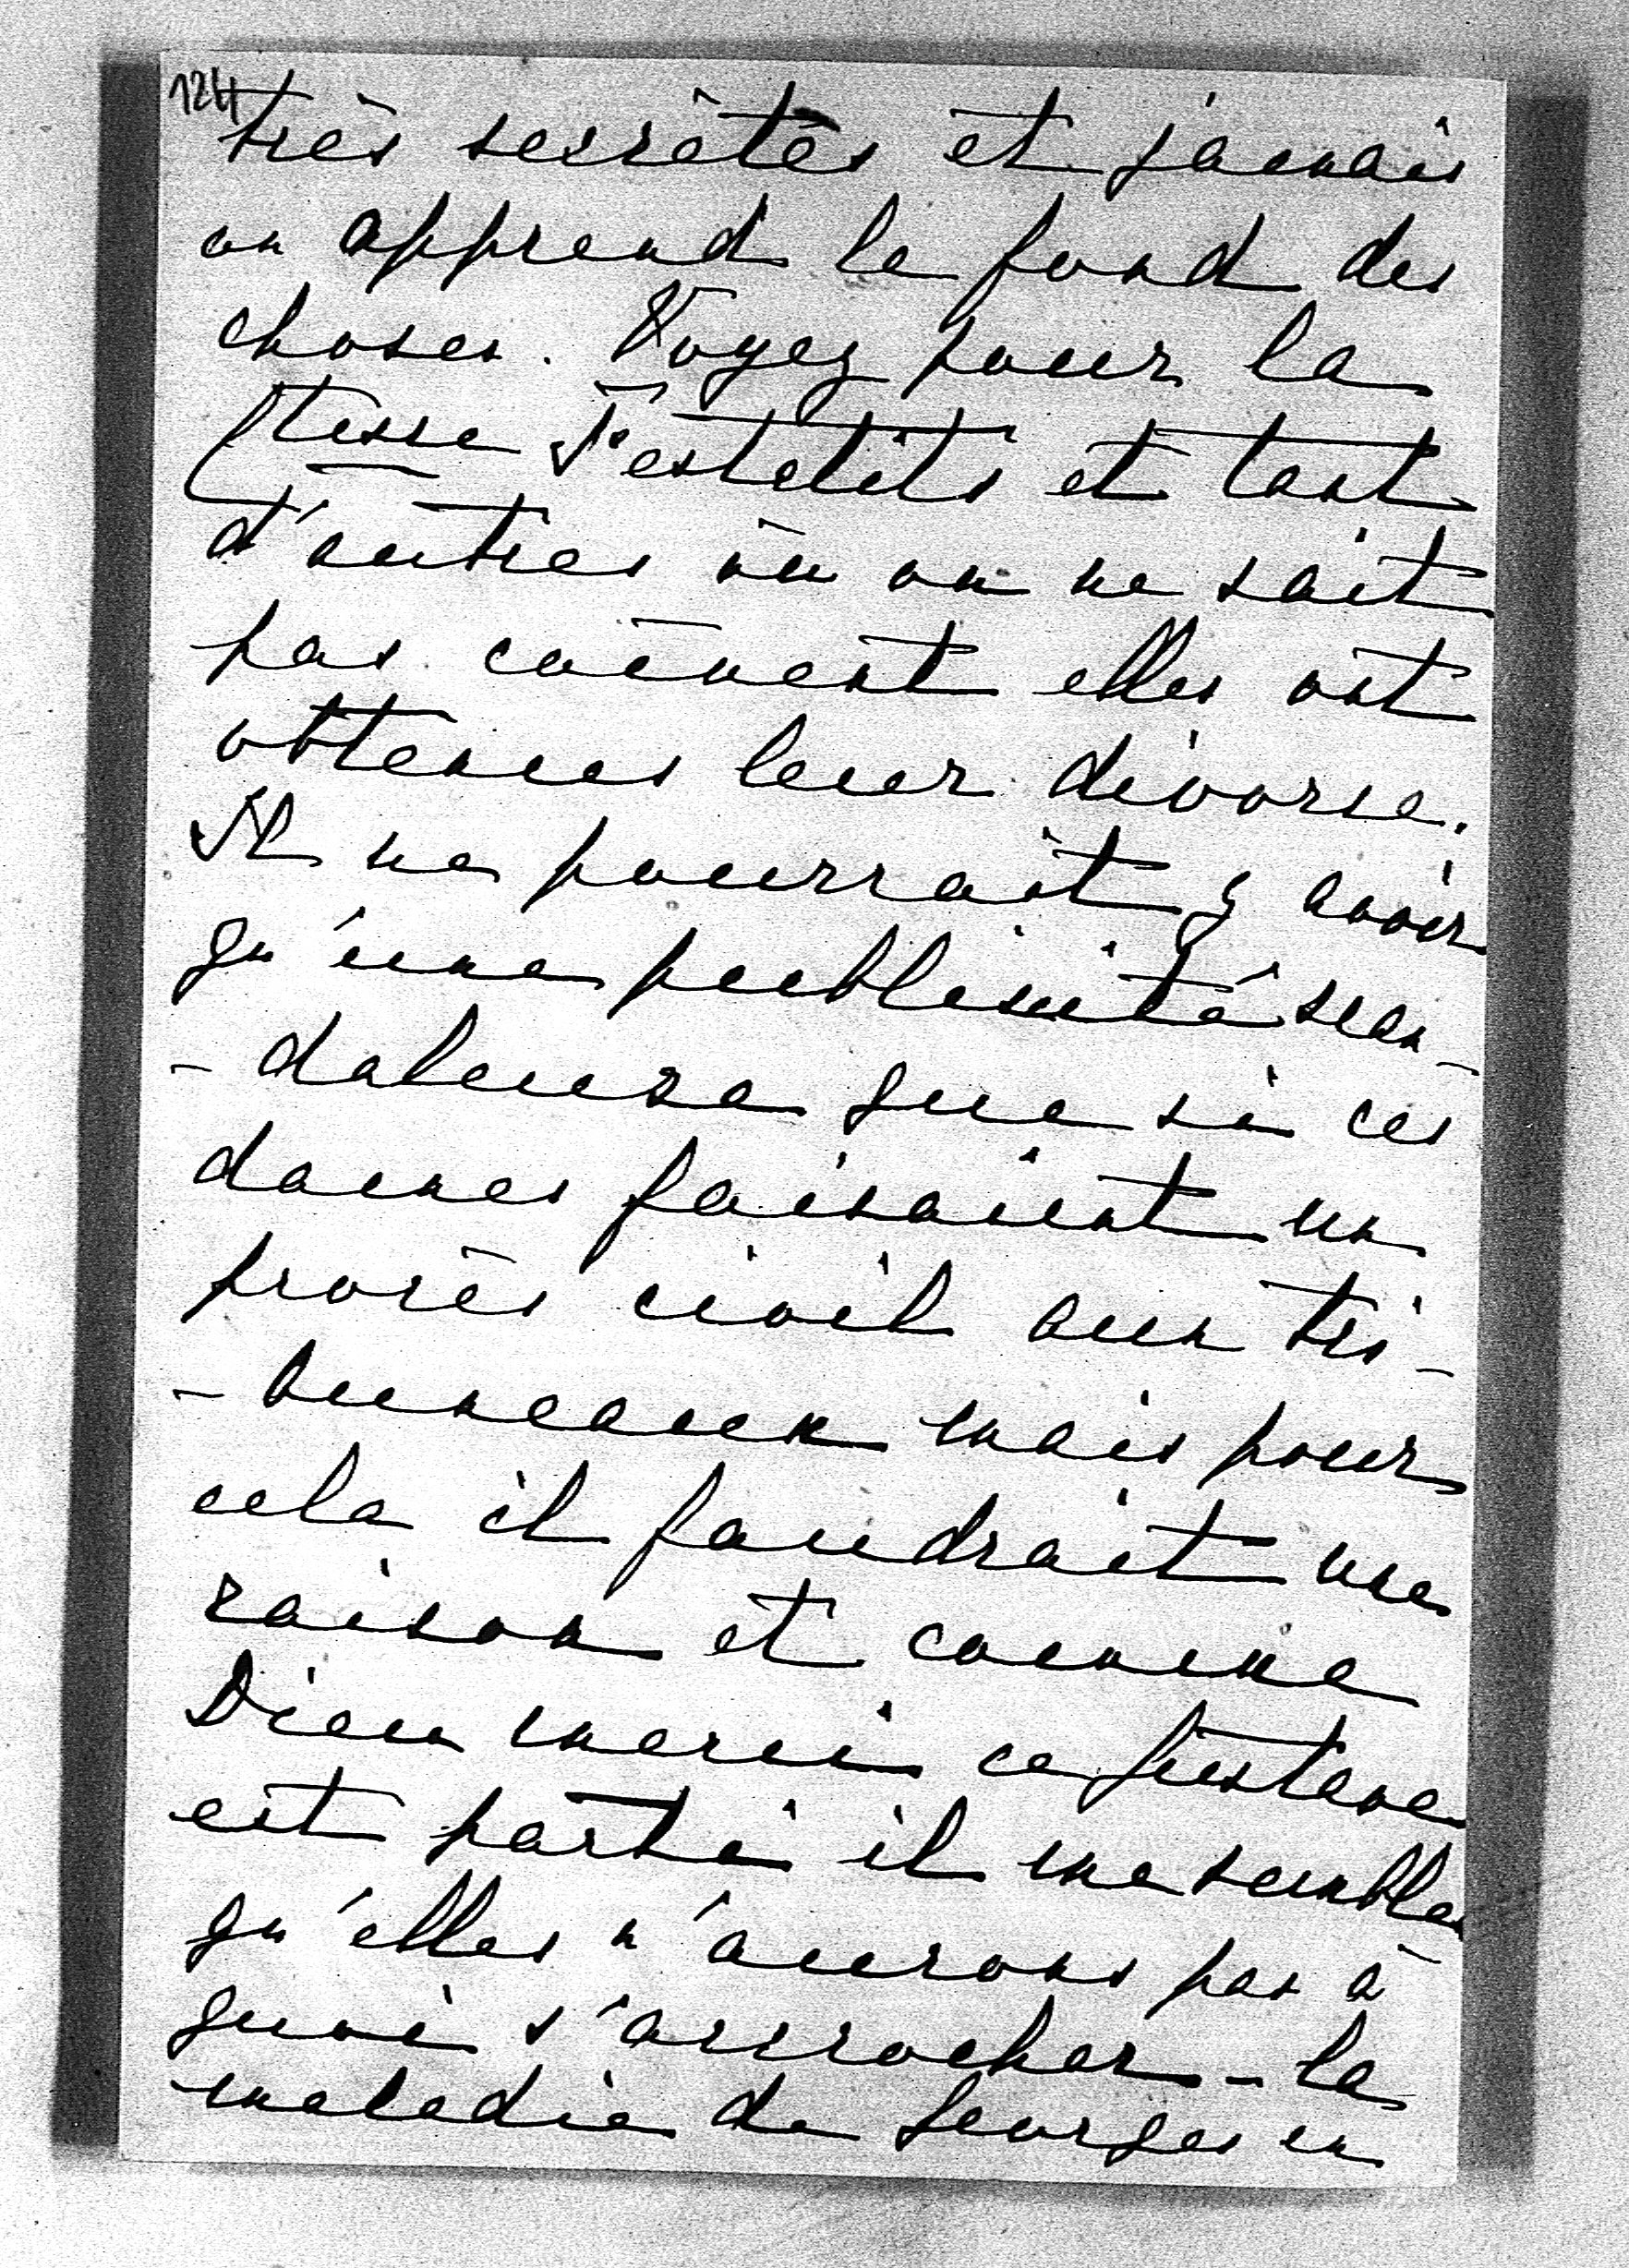 124
très secrètes et jamais
on apprend le fond des
choses. Voyez pour la
Ctesse Festetits et tant
d'autres où on ne sait
pas coment elles ont
obtenues leur divorce.
Il ne pourrait y avoir
qu'une publicité scan-
-daleuse que si ces
dames faisaient un
procès civil aux tri-
-buneaux mais pour
cela il faudrait une
raison et comme
Dieu merci ce
est parti il me semble
qu'elles n'aurons pas à
quoi s'accrocher - la
maladie de Georges en